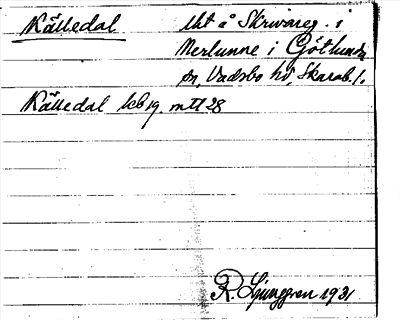 Källedal lht å Skrivareg. i
Merlunne i Götlunda
sn, Vadsbo hd, Skarab. l.
Källedal kb 19. mtl 28
R. Ljunggren 1931